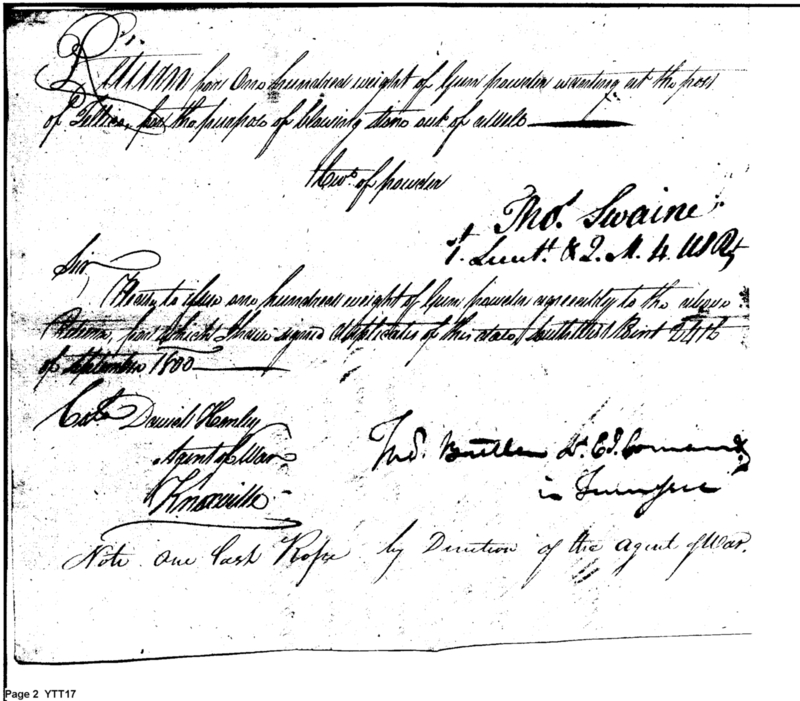 Return for One hundred weight of Gun powder wanting at the post
of Tellico, for the purpose of blowing stone out of a well
1 Cwt. of powder
Thos. Swaine
1t. Lieut. & Q. M. 4. US Rt
Sir
Please to issue one hundred weight of Gun powder agreeably to the above
Return, for which I have signed duplicates of this date, South West Point 24th
of September 1800
Colo. David Henley
Agent of War
Knoxville
Thos. Butler Lt. Col. Comand.
in Tennessee
Note one Cask Rifle by Direction of the Agent of War.
Page 2 YTT17